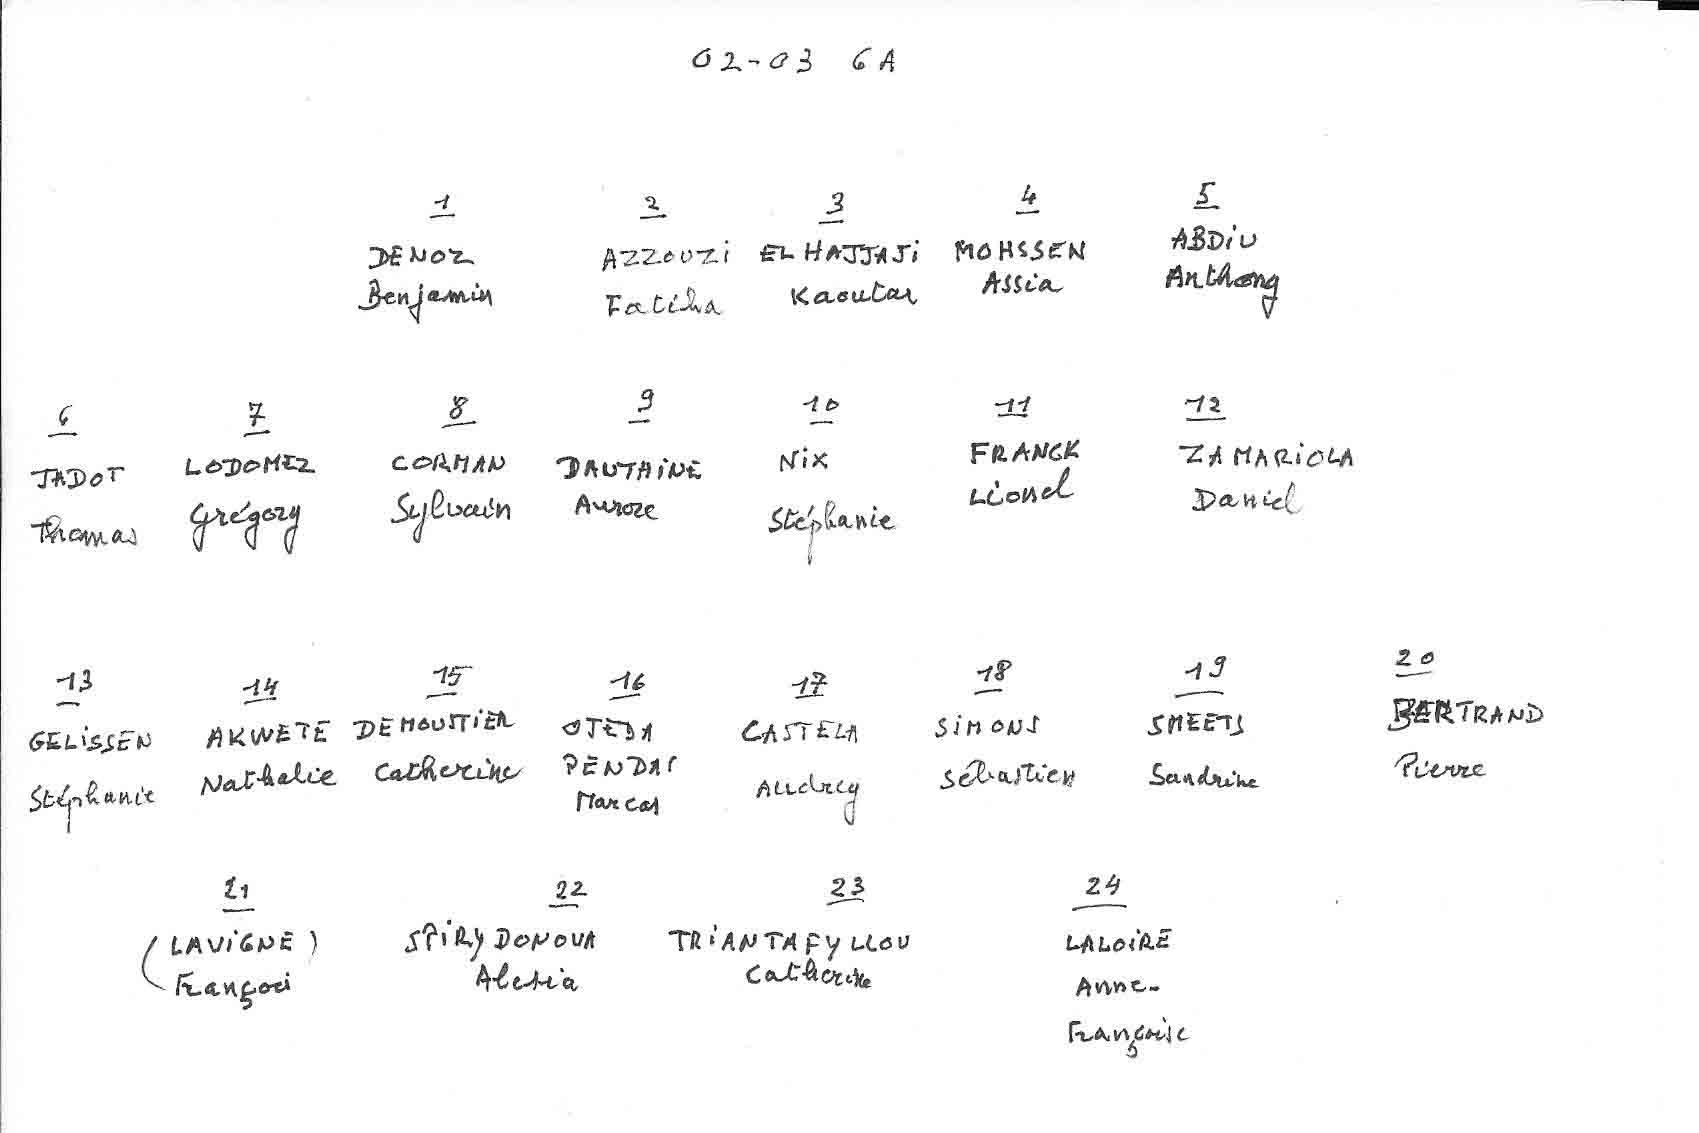 02-03 6A
1 2 3 4 5
DENOZ AZZOUZI EL HAJJAJI MOHSSEN ABDIU
Benjamin Fatiha Kaoutar Assia Anthony
6 7 8 9 10 11 12
JADOT LODOMEZ CORMAN DAUTAINE NIX FRANCK ZAMARIOLA
Thomas Grégory Sylvain Aurore Stéphanie Lionel Daniel
13 14 15 16 17 18 19 20
GELISSEN AKWETE DEMOUSTIER OJEDA CASTELA SIMONS SMEETS BERTRAND
Stéphanie Nathalie Catherine PENDAS Audrey Sébastien Sandrine Pierre
Marcos
21 22 23 24
(LAVIGNE) SPIRYDONOVA TRIANTAFYLLOU LALOIRE
François Alesia Catherine Anne-
Françoise